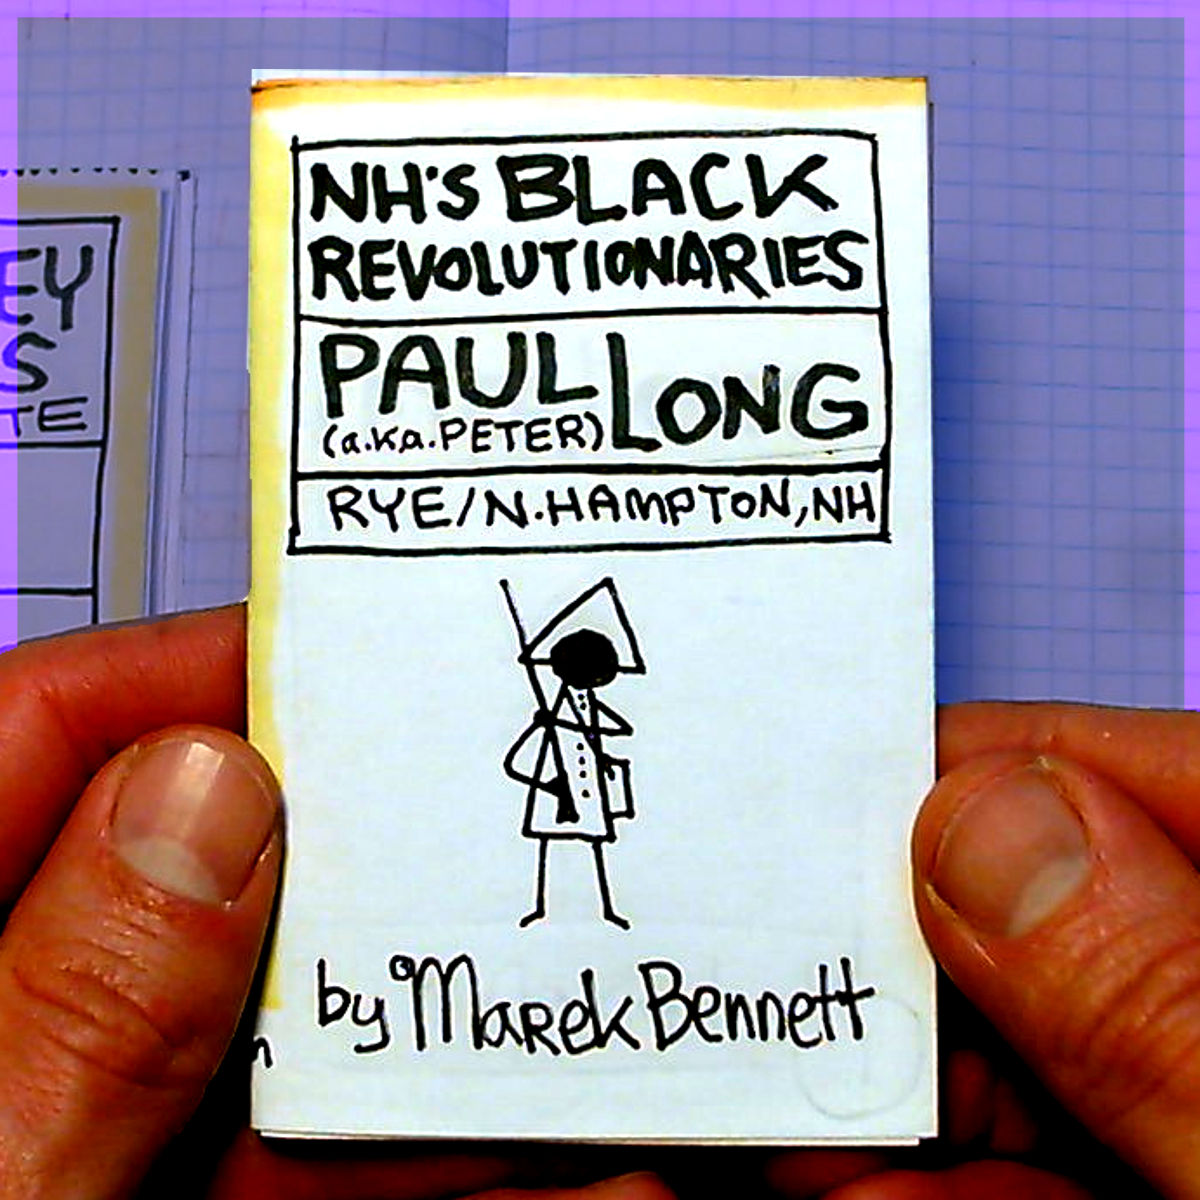 NH'S BLACK
REVOLUTIONARIES
PAUL LONG
(a.k.a. PETER)
RYE/N. HAMPTON, NH
by Marek Bennett
EY
S
TE
n